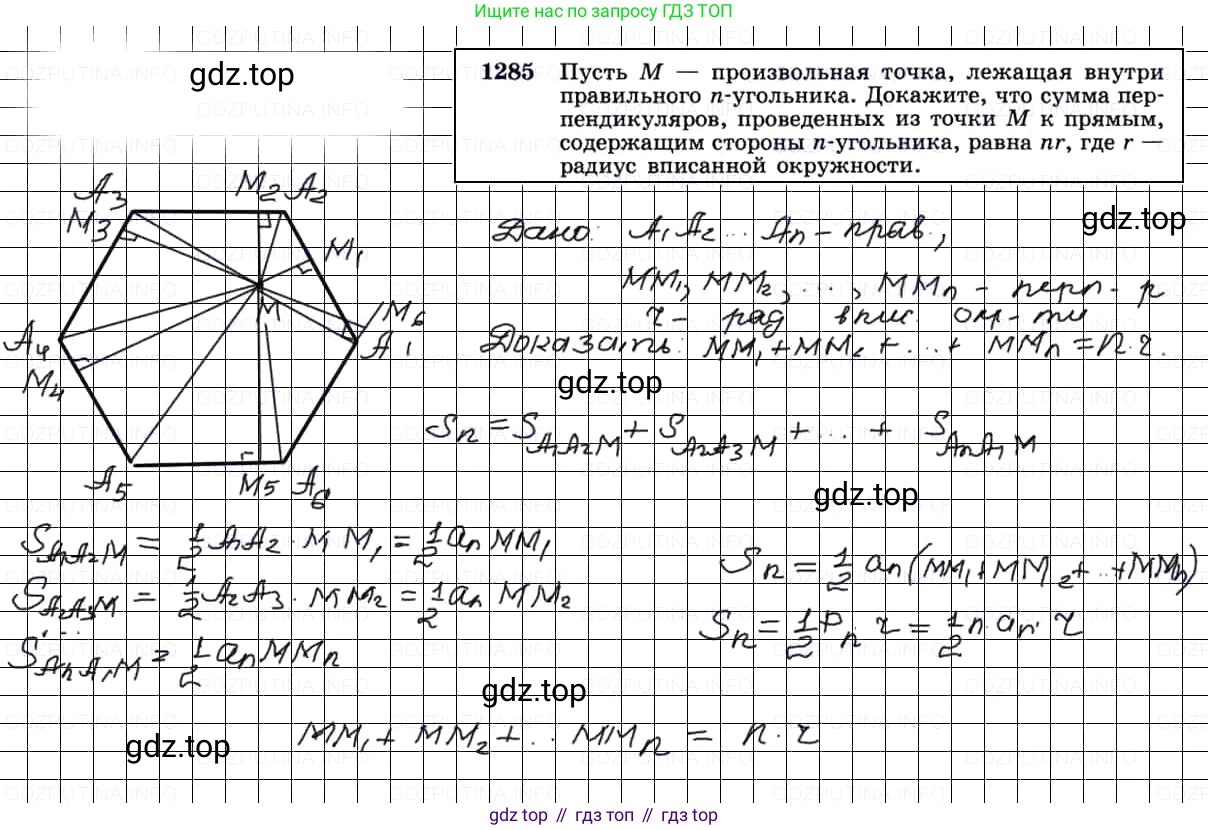 Ищите нас по запросу ГДЗ ТОП
gdz.top
1285 Пусть M — произвольная точка, лежащая внутри
правильного n-угольника. Докажите, что сумма пер-
пендикуляров, проведенных из точки M к прямым,
содержащим стороны n-угольника, равна nr, где r —
радиус вписанной окружности.
A₃ M₂ A₂
M₃
M₁
M
M₆
A₄ A₁
M₄
A₅ M₅ A₆
gdz.top
Дано: A₁A₂...Aₙ - прав.,
MM₁, MM₂, ..., MMₙ - перп-р
r - рад впис. окр-ти
Доказать: MM₁ + MM₂ + ... + MMₙ = n·r.
gdz.top
Sₙ = S_A₁A₂M + S_A₂A₃M + ... + S_AₙA₁M
gdz.top
S_A₁A₂M = 1/2 A₁A₂ · MM₁ = 1/2 aₙ MM₁
S_A₂A₃M = 1/2 A₂A₃ · MM₂ = 1/2 aₙ MM₂
...
S_AₙA₁M = 1/2 aₙ MMₙ
Sₙ = 1/2 aₙ (MM₁ + MM₂ + ... + MMₙ)
Sₙ = 1/2 Pₙ r = 1/2 n · aₙ · r
gdz.top
MM₁ + MM₂ + .. MMₙ = n · r
gdz.top
gdz top // гдз топ // gdz top
GDZPUTINA.INFO